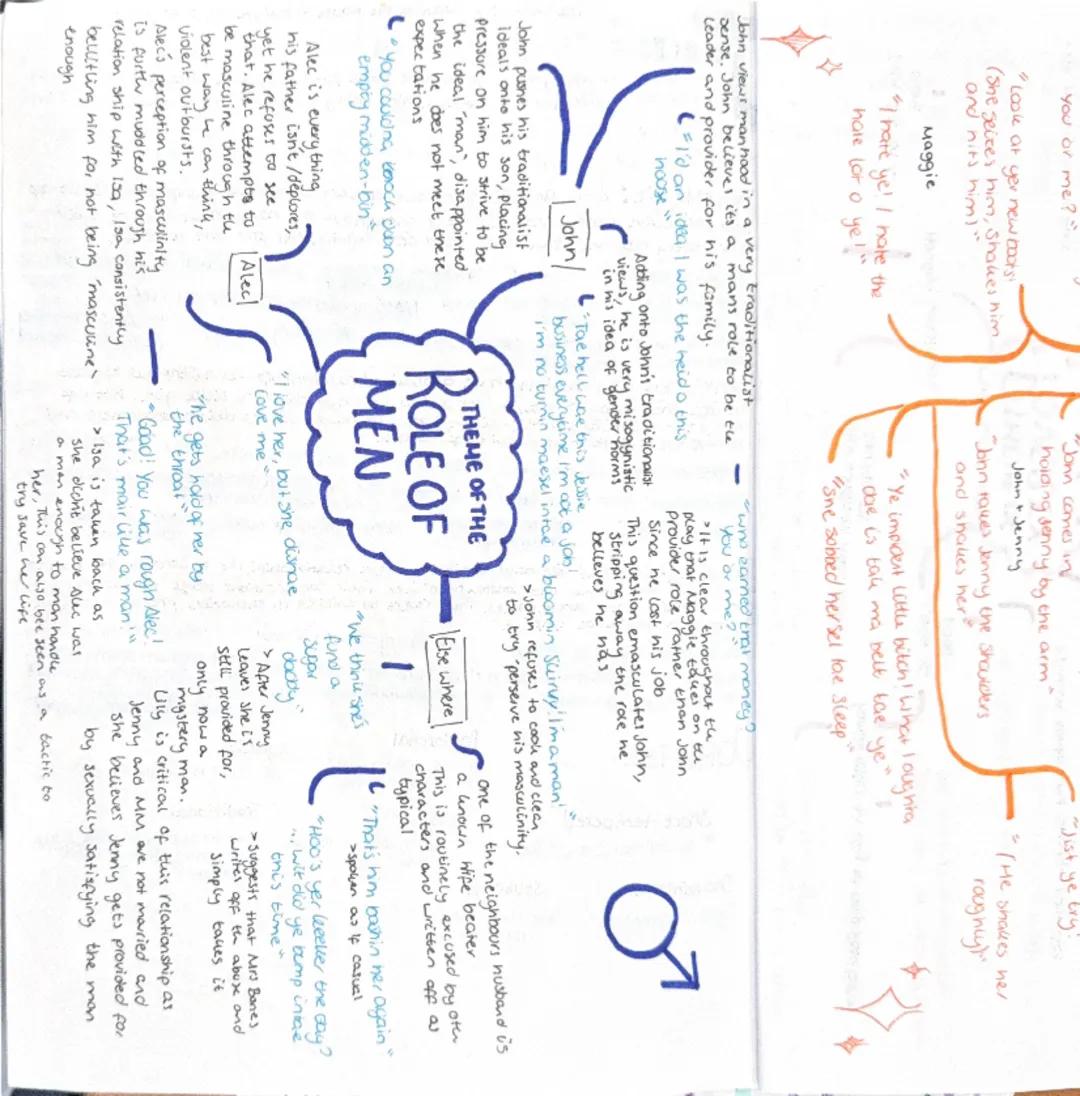 You or me?
"Look at yer new boots!
(She seizes him, shakes him
and hits him)"
Maggie
"I hate ye! I hate the
hale lot o ye!"
"John comes in
holding Jenny by the arm"
John + Jenny
"John takes Jenny the shoulders
and shakes her"
"Ye impident little bitch! What I oughta
dae is tak ma belt tae ye"
"She sobbed hersel tae sleep"
"Just ye try!
"(He shakes her
roughly)"
John views manhood in a very traditionalist
sense. John believes its a mans role to be the
leader and provide for his family.
"I'd an idea I was the heid o this
hoose"
"who earned that money?
You or me?"
>It is clear throughout the
play that Maggie takes on the
provider role rather than John
since he lost his job
This question emasculates John,
stripping away the role he
believes he has
John
Adding onto John's traditionalist
views, he is very misogynistic
in his idea of gender norms
"Tae hell wi this Jessie
business everytime I'm oot a job
I'm no turnin masel intae a bloomin skivvy! I'm a man!"
>John refuses to cook and clean
to try perserve his masculinity.
John pushes his traditionalist
ideals onto his son, placing
pressure on him to strive to be
the ideal "man", disappointed
when he does not meet these
expectations
"You couldna knock ower an
empty midden-bin"
THEME OF THE
ROLE OF
MEN
Alec
Alec is everything
his father isn't/deplores,
yet he refuses to see
that. Alec attempts to
be masculine through the
best way he can think,
violent outbursts.
Alec's perception of masculinity
is further muddled through his
relation ship with Isa, Isa consistently
belittling him for not being "masculine"
enough
"I love her, but she disnae
love me"
"He gets hold of her by
the throat"
"Good! You was rough Alec!
That's mair like a man!"
> Isa is taken back as
she didn't believe Alec was
a man enough to man handle
her. This can also be seen as a tactic to
try save her life
Else where
One of the neighbours husband is
a known wife beater
This is routinely excused by other
characters and written off as
typical
"That's him bashin her again"
>spoken as if casual
"Hoo's yer keeker the day?
... Wit did ye bump intae
this time"
>suggest that Mrs Bones
writes off the abuse and
simply takes it
"We think she's
fund a
sugar
daddy"
> After Jenny
leaves she is
still provided for,
only now a
mystery man
Lily is critical of this relationship as
Jenny and MM are not married and
she believes Jenny gets provided for
by sexually satisfying the man